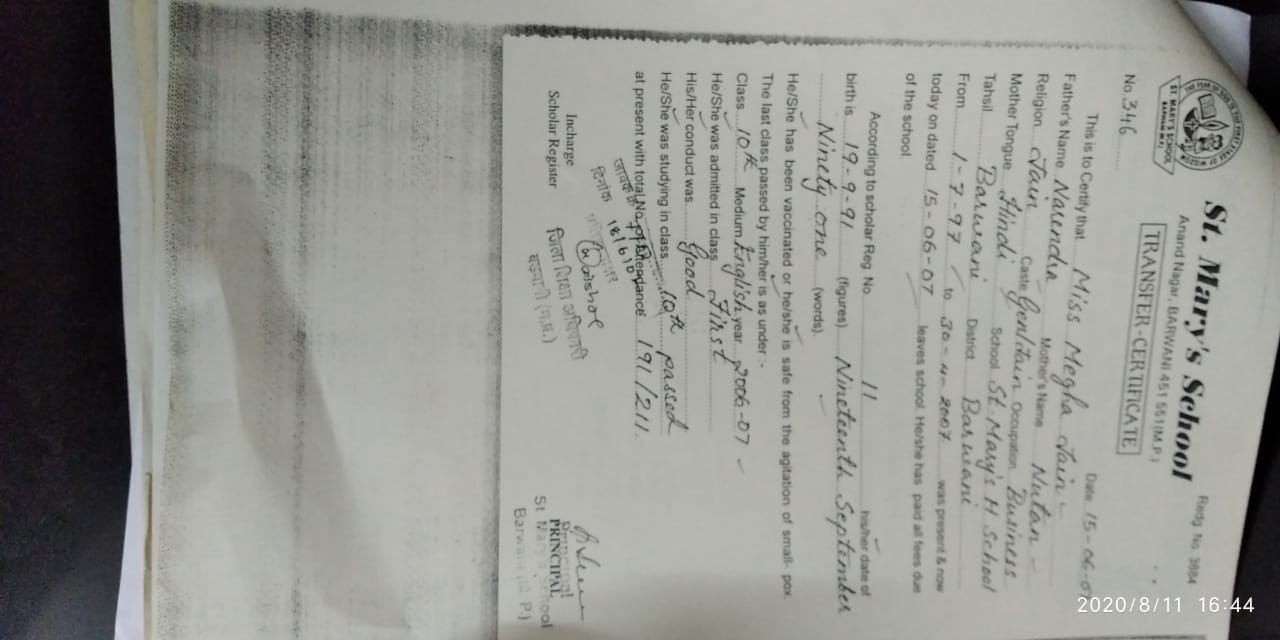 St. Mary's School
Redg. No. 3884
Anand Nagar, BARWANI 451 551 (M.P.)
ST. MARY'S SCHOOL
BARWANI (M.P.)
TRANSFER-CERTIFICATE
No 346
Date 15-06-07
This is to Certify that Miss Megha Jain
Father's Name Narendra Mother's Name Nutan
Religion Jain Caste Gen/Jain Occupation Business
Mother Tongue Hindi School St. Mary's H School
Tahsil Barwani District Barwani
From 1-7-97 to 30-4-2007 was present & now
today on dated 15-06-07 leaves school. He/she has paid all fees due
of the school.
According to scholar Reg No. 11 his/her date of
birth is 19-9-91 (figures) Nineteenth September
Ninety one (words).
He/She has been vaccinated or he/she is safe from the agitation of small- pox.
The last class passed by him/her is as under :-
Class 10th Medium English year 2006-07
He/She was admitted in class First
His/Her conduct was Good
He/She was studying in class 10th passed
at present with total No. of attendance 191/211.
जावक
दिनांक 18/6/07
Incharge
Scholar Register
जिला शिक्षा अधिकारी
बड़वानी (म.प्र.)
Principal
PRINCIPAL
St Mary's School
Barwani (M. P.)
2020/8/11 16:44